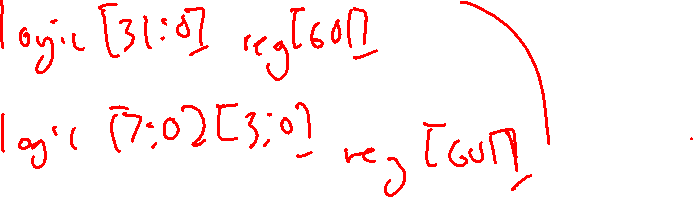 logic [31:0] reg[60]
logic [7:0][3:0] reg [60]